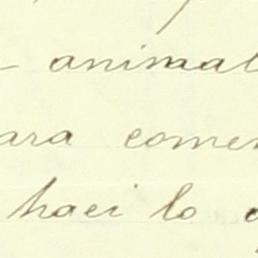 animal
ara comen
haci lo